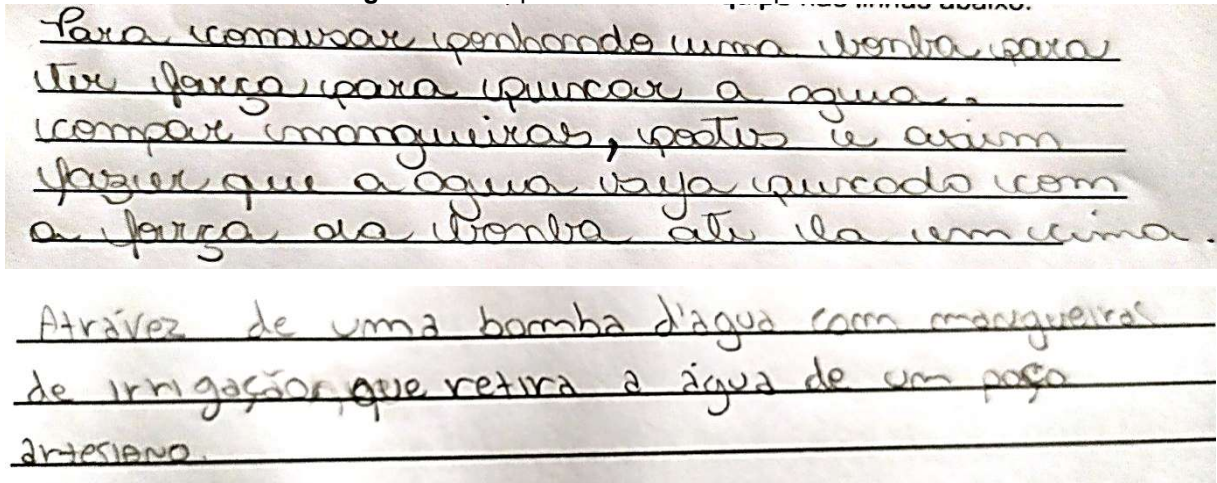 Para comusar ponhando uma bonba para
ter força para puncar a agua.
compar mangueiras, postes e asim
fazer que a agua vaya puncado com
a força da bonba ate la em cima.
Atrávez de uma bomba d'água com mangueiras
de irrigação, que retira a água de um poço
artesiano.